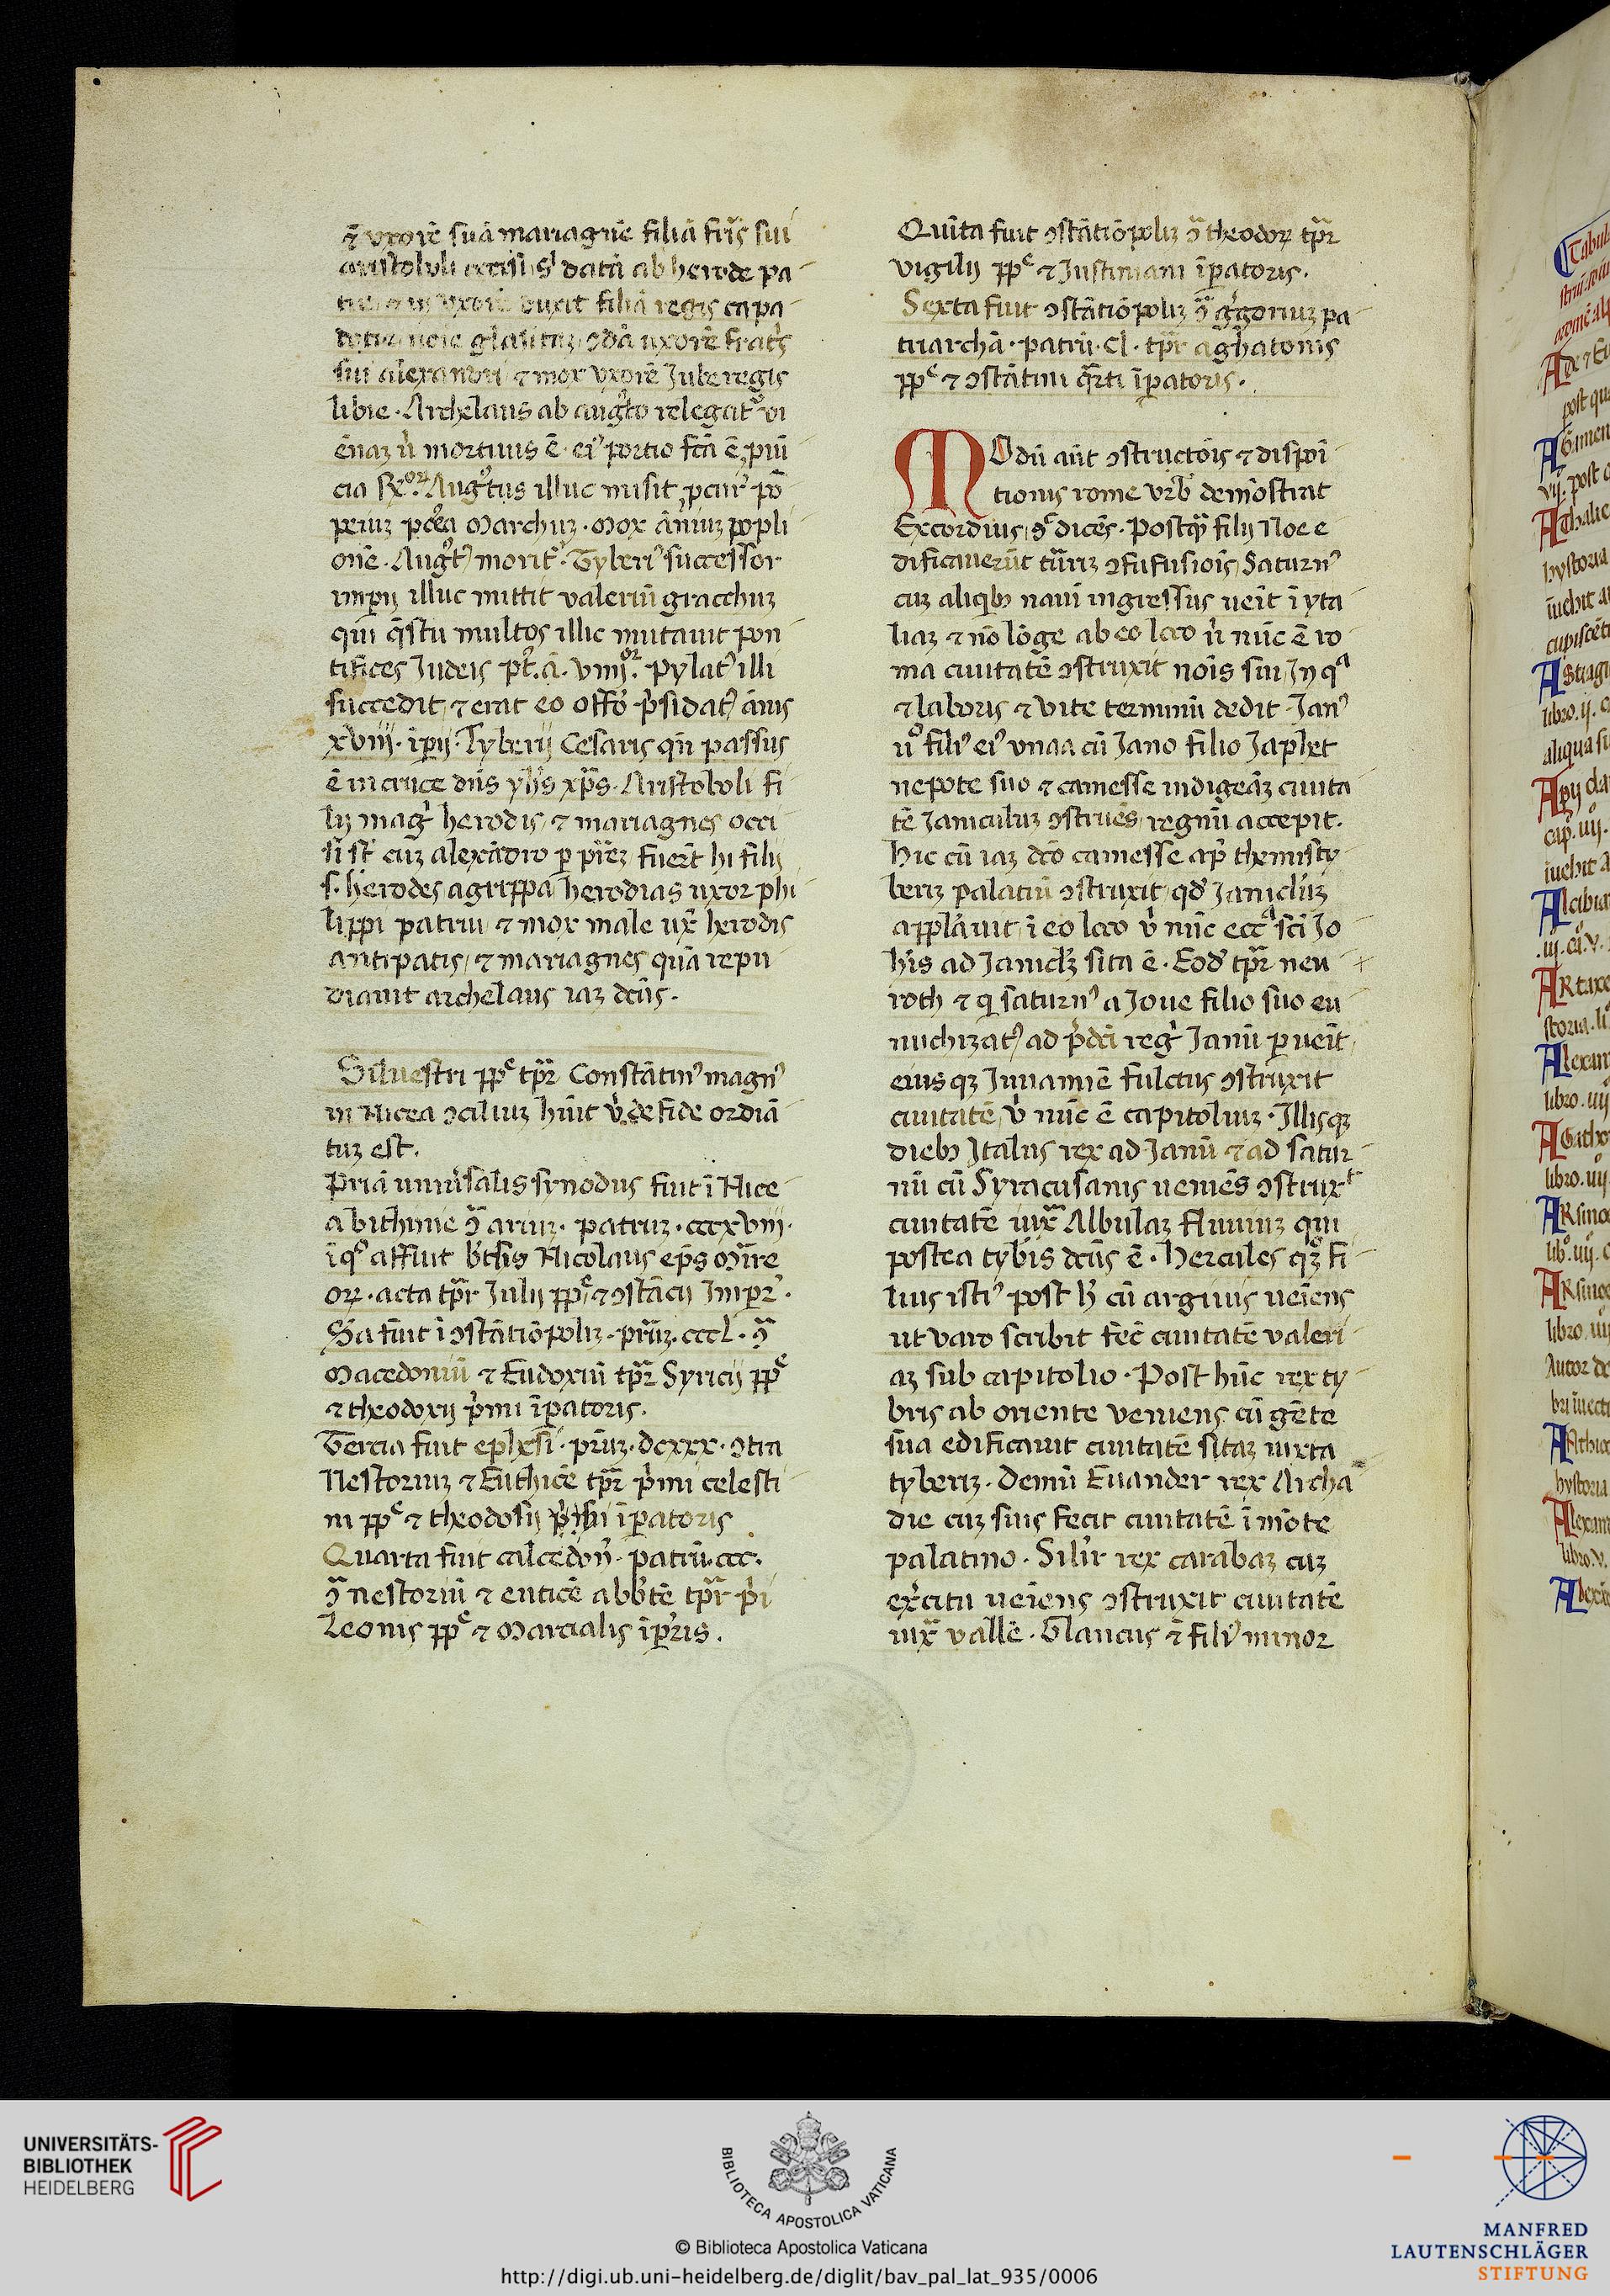 ⁊ uxorē suā mariagnē filiā fr̄is sui
aristoboli datā ab herode pa
uxorē duxit filiā regis capa
uxorē frat̄s
sui alexandri ⁊ mox uxorē Jube regis
libie. Archelaus ab augto relegat᷒ vi
ēnaz ů mortuus ē. ei᷒ portio fc̄a ē puī
cia Augtus illuc misit pcur̄ pō
peiuz postea Marchuz. Mox āniuz popli
onē. Augt᷒ morit᷒. Tyberi᷒ successor
imperij illuc mittit valeriū gracchuz
qui q̄stu multos illic mutauit pon
tifices Judeis Pylat᷒ illi
succedit ⁊ erat eo offo p̄sidat᷒ ānis
xviij. īpij. Tyberij Cesaris qn̄ passus
ē in cruce dn̄s yhs xp̄s. Aristoboli fi
lij mag̊ herodis ⁊ mariagnes occi
si st̄ cuz alexādro p pr̄ez fuer̄t hi filij
s. herodes agrippa herodias uxor phi
lippi patrui ⁊ mox male ux̄ herodis
antipatis ⁊ mariagnes quā repu
diauit archelaus iaz dc̄us.
Siluestri pp̄e tpr̄ Constātin᷒ magn᷒
in Nicea ↄciliuz hūit ů de fide ordīa
tuz est.
Primā uniůsalis synodus fuit ī Nice
a bithinie ↄ̄ ariuz. patruz. cccxviij.
ī q᷒ affuit bt̄us Nicolaus ep̄s Mirre
oꝝ. acta tpr̄ Julij pp̄e ⁊ ↄstācij Imper̄.
Sc̄da fuit ī ↄstātiōpoliz. pr̄uz. cccl. ↄ̄
Macedoniū ⁊ Eudoxiū tpr̄ Syricij pp̄e
⁊ theodoxij p̄mi īperatoris.
Tercia fuit ephesi. pr̄uz. dcxxx. ↄtra
Nestoriuz ⁊ Euthicē tpr̄ p̄mi celesti
ni pp̄e ⁊ theodosij īperatoris
Quarta fuit calcedoń. patrū. ccc.
ↄ̄ nestoriū ⁊ euticē abbtē tpr̄ p̄i
Leonis pp̄e ⁊ Marcialis īperis.
Quīta fuit ↄstātiōpoliz ↄ̄ theodoꝝ tpr̄
vigilij pp̄e ⁊ Justiniani īperatoris.
Sexta fuit ↄstātiōpoliz ↄ̄ g̊goriuz pa
triarchā. patrū. cl. tpr̄ aghatonis
pp̄e ⁊ ↄstātini q̄rti īperatoris.
MOdū aūt ↄstructōis ⁊ dispoī
tionis rome vrb̄ demōstrat
Excordius s̄ dicēs. Postq̄ filij Noe e
dificauerūt turriz ↄfufusiōis Saturn᷒
cuz aliqb᷒ naui ingressus ueīt ī yta
liaz ⁊ nō lōge ab eo loco ů nūc ē ro
ma ciuitatē ↄstruxit nōis sui Jn qª
⁊ laboris ⁊ vite terminū dedit. Jan᷒
ůo fili᷒ ei᷒ vnaa cū Jano filio Japhet
nepote suo ⁊ camesse indigeāz ciuita
tē Janiculuz ↄstruēs regnū accepit.
Hic cū iaz dc̄o camesse ap̄ themisty
beriz palatiū ↄstruxit qd̄ Janicluz
applāuit ī eo loco ů nūc eccª sc̄i Jo
h̄is ad Janiclz sita ē. Eod̄ tpr̄ neu
roth ⁊ q saturn᷒ a Joue filio suo eu
nuchizat᷒ ad p̄dc̄i reg̊ Janū p ueīt
eiusqz Juuamīē fulctus ↄstruxit
ciuitatē ů nūc ē capitoliuz. Illisqz
dieb᷒ Italus rex ad Janū ⁊ ad satur
nū cū Syracusanis ueniēs ↄstruxᵗ
ciuitatē iuxª Albulaz fluuiuz qui
postea tybis dc̄us ē. Hercules qz fi
lius isti᷒ post h̄ cū arguiis ueīens
ut varo scribit fec̄ ciuitatē valeri
az sub capitolio. Post hūc rex ty
bris ab oriente veniens cū gēte
sua edificauit ciuitatē sitaz iuxta
tyberiz. Demū Euander rex Archa
die cuz suis fecit ciuitatē ī mōte
palatino. Silir rex carabaz cuz
ex̊citu ueīens ↄstruxit ciuitatē
iuxª vallē. Glaucus ⁊ fili᷒ minor
UNIVERSITÄTS-
BIBLIOTHEK
HEIDELBERG
BIBLIOTECA APOSTOLICA VATICANA
© Biblioteca Apostolica Vaticana
http://digi.ub.uni-heidelberg.de/diglit/bav_pal_lat_935/0006
MANFRED
LAUTENSCHLÄGER
STIFTUNG